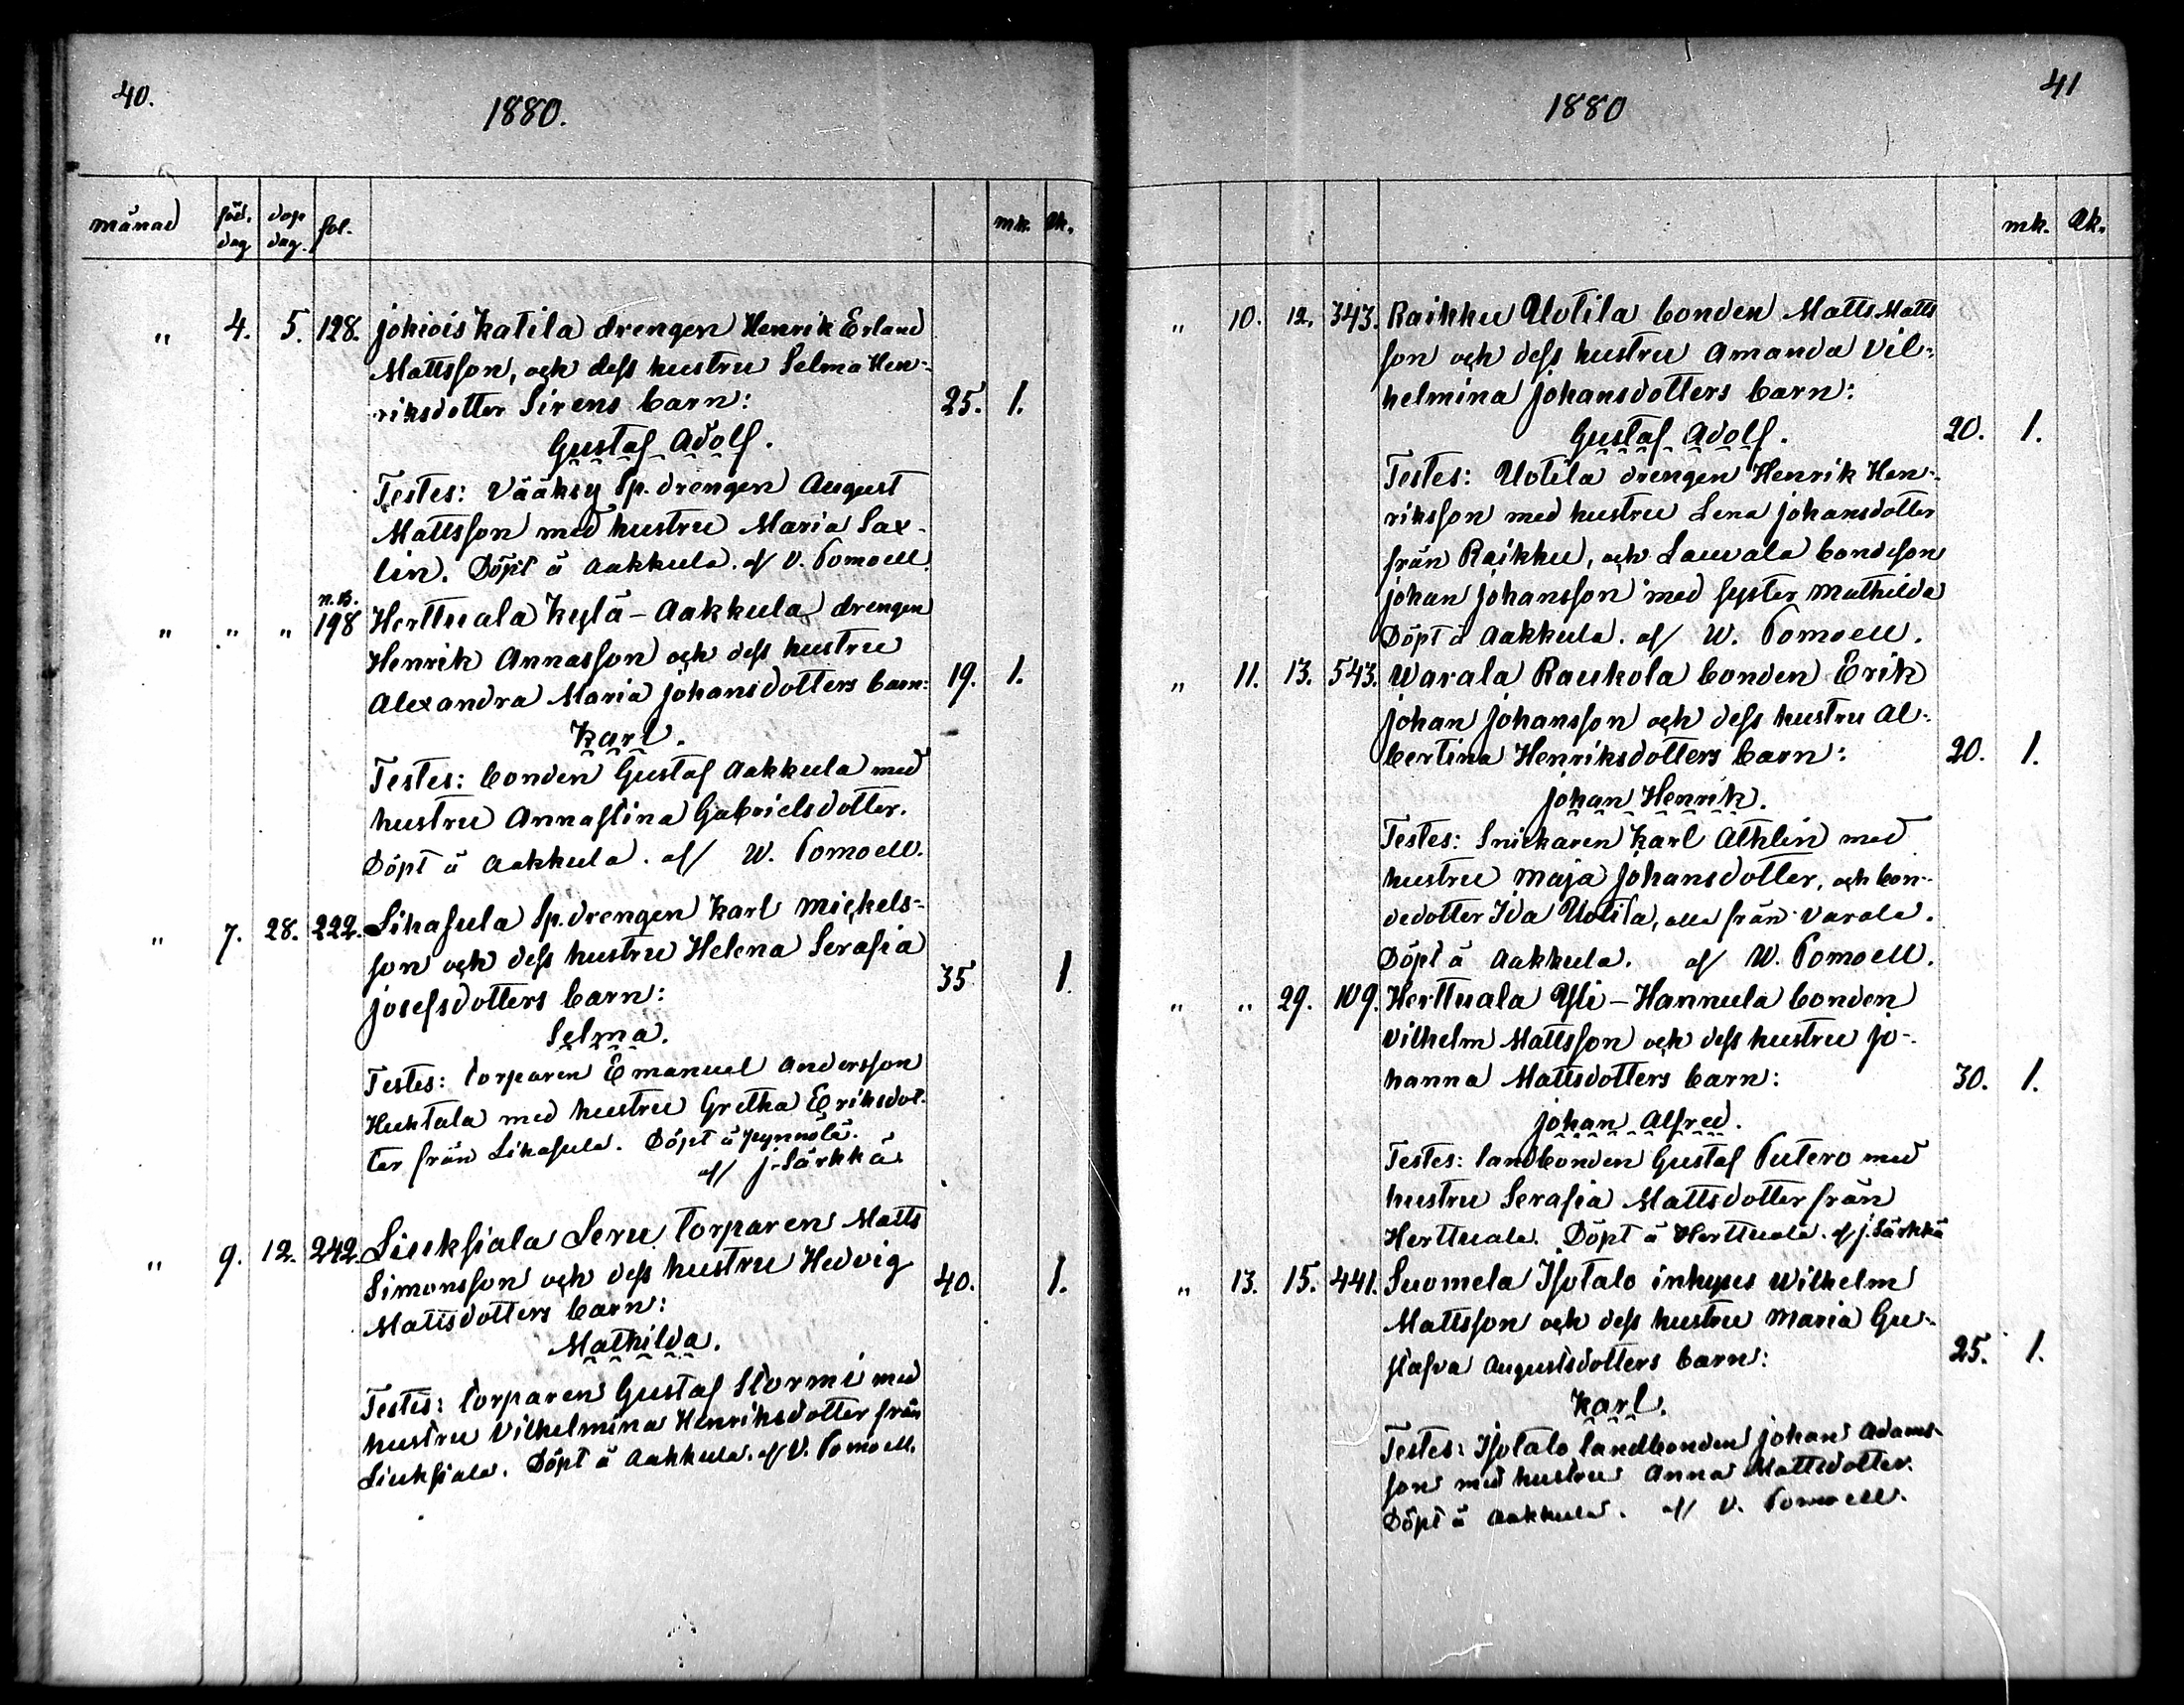 40.
1880.
månad föd. dag dop dag. fol. mk. Qk.
" 4. 5. 128. Jokiois Katila drengen Henrik Erland
Mattsson, och dess hustru Selma Hen-
riksdotter Sirens barn: 25. 1.
Gustaf Adolf.
Testes: Vääksy Sp. drengen August
Mattsson med hustru Maria Sax-
lin. Döpt å Aakkula. af V. Pomoell.
n.B.
" " " 198 Herttuala Kylä-Aakkula drengen
Henrik Annasson och dess hustru
Alexandra Maria Johansdotters barn: 19. 1.
Karl.
Testes: bonden Gustaf Aakkula med
hustru Annastina Gabrielsdotter.
Döpt å Aakkula. af W. Pomoell.
" 7. 28. 222. Lihasula Sp. drengen Karl Mickels-
son och dess hustru Helena Serafia
Josefsdotters barn: 35 1
Selma.
Testes: torparen Emanuel Andersson
Huhtala med hustru Gretha Eriksdot-
ter från Lihasula. Döpt å Pynnölä.
af J. Särkkä
" 9. 12. 242. Liuksiala Seru torparen Matts
Simonsson och dess hustru Hedvig
Mattsdotters barn: 40. 1.
Mathilda.
Testes: torparen Gustaf Stormi med
hustru Vilhelmina Henriksdotter från
Liuksiala. Döpt å Aakkula. af V. Pomoell.
41
1880
mk. Qk.
" 10. 12. 343. Raikku Uotila bonden Matts Matts
son och dess hustru Amanda Vil-
helmina Johansdotters barn:
Gustaf Adolf. 20. 1.
Testes: Uotila drengen Henrik Hen-
riksson med hustru Lena Johansdotter
från Raikku, och Lauvala bondeson
Johan Johansson med syster Mathilda
Döpt å Aakkula. af W. Pomoell.
" 11. 13. 543. Warala Raukola bonden Erik
Johan Johansson och dess hustru Al-
bertina Henriksdotters barn: 20. 1.
Johan Henrik.
Testes: Snickaren Karl Athlin med
hustru Maja Johansdotter, och bon-
dedotter Ida Uotila, alla från Varala.
Döpt å Aakkula. af W. Pomoell.
" " 29. 109. Herttuala Yli-Hannula bonden
Vilhelm Mattsson och dess hustru Jo-
hanna Mattsdotters barn: 30. 1.
Johan Alfred.
Testes: landbonden Gustaf Putero med
hustru Serafia Mattsdotter från
Herttuala. Döpt å Herttuala. af J. Särkkä
" 13. 15. 441. Suomela Isotalo inhyses Wilhelm
Mattsson och dess hustru Maria Gu-
stafva Augustsdotters barn: 25. 1.
Karl.
Testes: Isotalo landbonden Johan Adams-
son med hustru Anna Mattsdotter.
Döpt å Aakkula. af V. Pomoell.